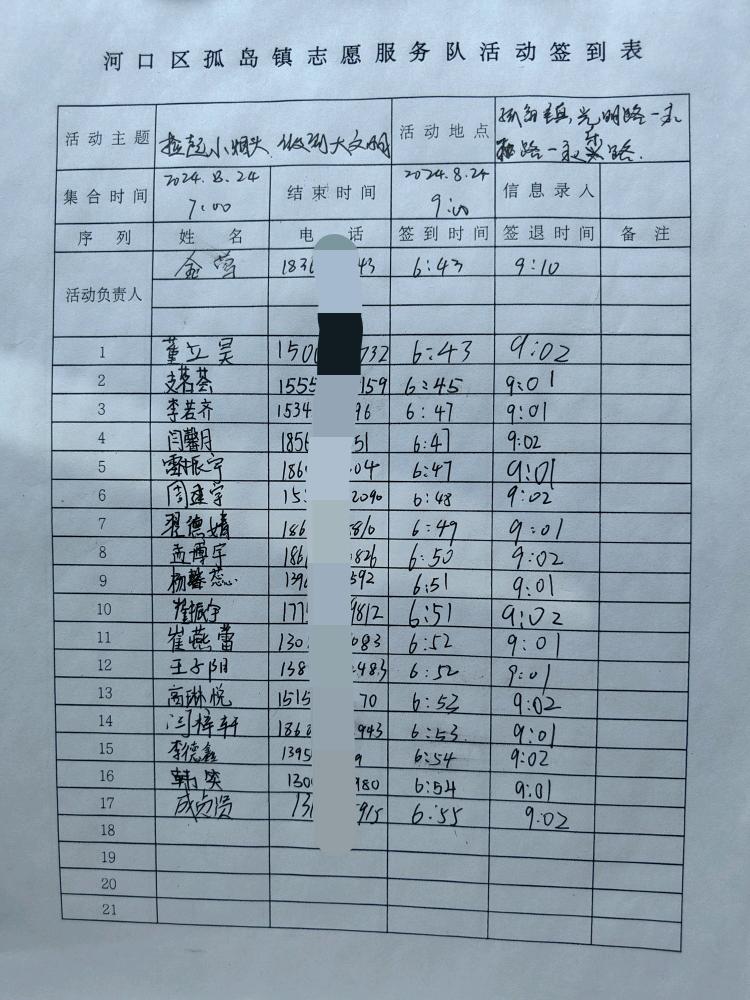 河口区孤岛镇志愿服务队活动签到表
活动主题 捡起小烟头 收到大文明 活动地点 孤岛镇光明路一永
路一永乐路.
集合时间 2024.8.24 7:00 结束时间 2024.8.24 9:00 信息录人
序列 姓名 电话 签到时间 签退时间 备注
活动负责人 183 43 6:43 9:10
1 董立昊 150 732 6:43 9:02
2 支茗荟 1555 159 6:45 9:01
3 李若齐 1534 96 6:47 9:01
4 闫馨月 1856 51 6:47 9:02
5 振宇 186 04 6:47 9:01
6 周建宇 15 2090 6:48 9:02
7 翟德婧 186 810 6:49 9:01
8 孟博宇 186 826 6:50 9:02
9 杨馨蕊 139 592 6:51 9:01
10 振宇 177 9812 6:51 9:02
11 崔燕蕾 130 083 6:52 9:01
12 王子阳 138 483 6:52 9:01
13 高琳悦 1515 70 6:52 9:02
14 闫梓轩 186 943 6:53 9:01
15 李德鑫 1395 9 6:54 9:02
16 韩奕 130 980 6:54 9:01
17 成贞贤 13 915 6:55 9:02
18
19
20
21